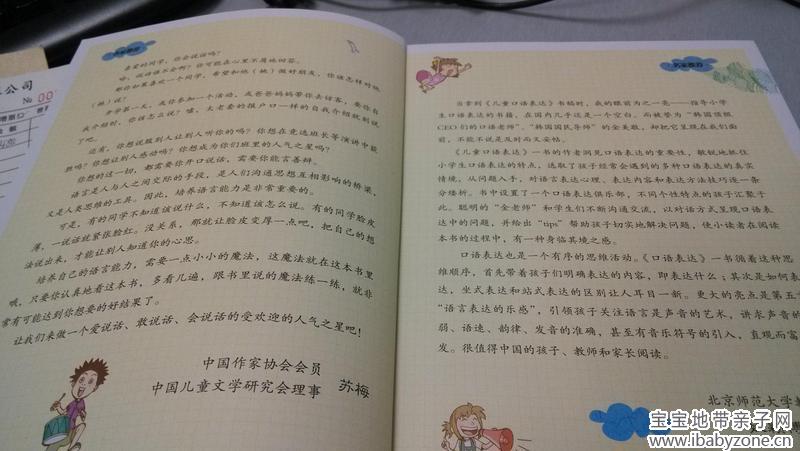 亲爱的同学，你会说话吗？
哈，说话谁不会啊？你可能在心里不屑地回答。
那你如果喜欢一个同学，希望和他（她）做好朋友，你该怎样对他
（她）说？
开学第一天，或你参加一个活动，或爸爸妈妈带你去访客，要你自
我介绍时，你该怎么说？嘻，大老婆的报户口一样的自我介绍就别说
了吧。
还有，你想说服别人让别人听你的吗？你想在竞选班长等演讲中能
胜吗？你想让别人感动吗？你想成为你们班里的人气之星吗？
你想的这一切，都需要你开口说话，需要你能言善辩。
语言是人与人之间交际的手段，是人们沟通思想互相影响的桥梁，
又是人类思维的工具。因此，培养语言能力是非常重要的。
可是，有的同学不知道该说什么，不知道该怎么说。有的同学脸皮
薄，一说话就紧张脸红。没关系，那就让脸皮变厚一点吧，把自己的想
法说出来，才能让别人知道你的心思。
培养自己的语言能力，需要一点小小的魔法，这魔法就在这本书里
哦，只要你认真地看这本书，多看几遍，跟书里说的魔法练一练，就非
常有可能达到你想要的好结果了。
让我们来做一个爱说话、敢说话、会说话的受欢迎的人气之星吧！
中国作家协会会员
中国儿童文学研究会理事 苏梅
名家推荐
当拿到《儿童口语表达》书稿时，我的眼前为之一亮——指导小学
生口语表达的书籍，在国内几乎这是一个空白。而被誉为“韩国顶级
CEO们的口语老师”、“韩国国民导师”的金美敬，却把它呈现在我们面
前，不能不说是及时而又妥帖。
《儿童口语表达》一书的作者洞见口语表达的重要性，敏锐地抓住
小学生口语表达的特点，选取了孩子经常会遇到的多种口语表达的真实
情境，从问题入手，对语言表达心理、表达内容和表达方法技巧逐一条
分缕析。书中设置了一个口语表达俱乐部，不同个性特点的孩子汇聚于
此。聪明的“金老师”和学生们不断沟通交流，以对话方式呈现口语表
达中的问题，并给出“tips”帮助孩子切实地解决问题，使小读者在阅读
本书的过程中，有一种身临其境之感。
口语表达也是一个有序的思维活动。《口语表达》一书循着这种思
维顺序，首先带着孩子们明确表达的内容，即表达什么；其次是如何表
达，坐式表达和站式表达的区别让人耳目一新。更大的亮点是第五
“语言表达的乐感”，引领孩子关注语言是声音的艺术，讲求声音的
弱、语速、韵律、发音的准确，甚至有音乐符号的引入，直观而富
发。很值得中国的孩子、教师和家长阅读。
北京师范大学
公司
№ 00
宝宝地带亲子网
www.ibabyzone.cn